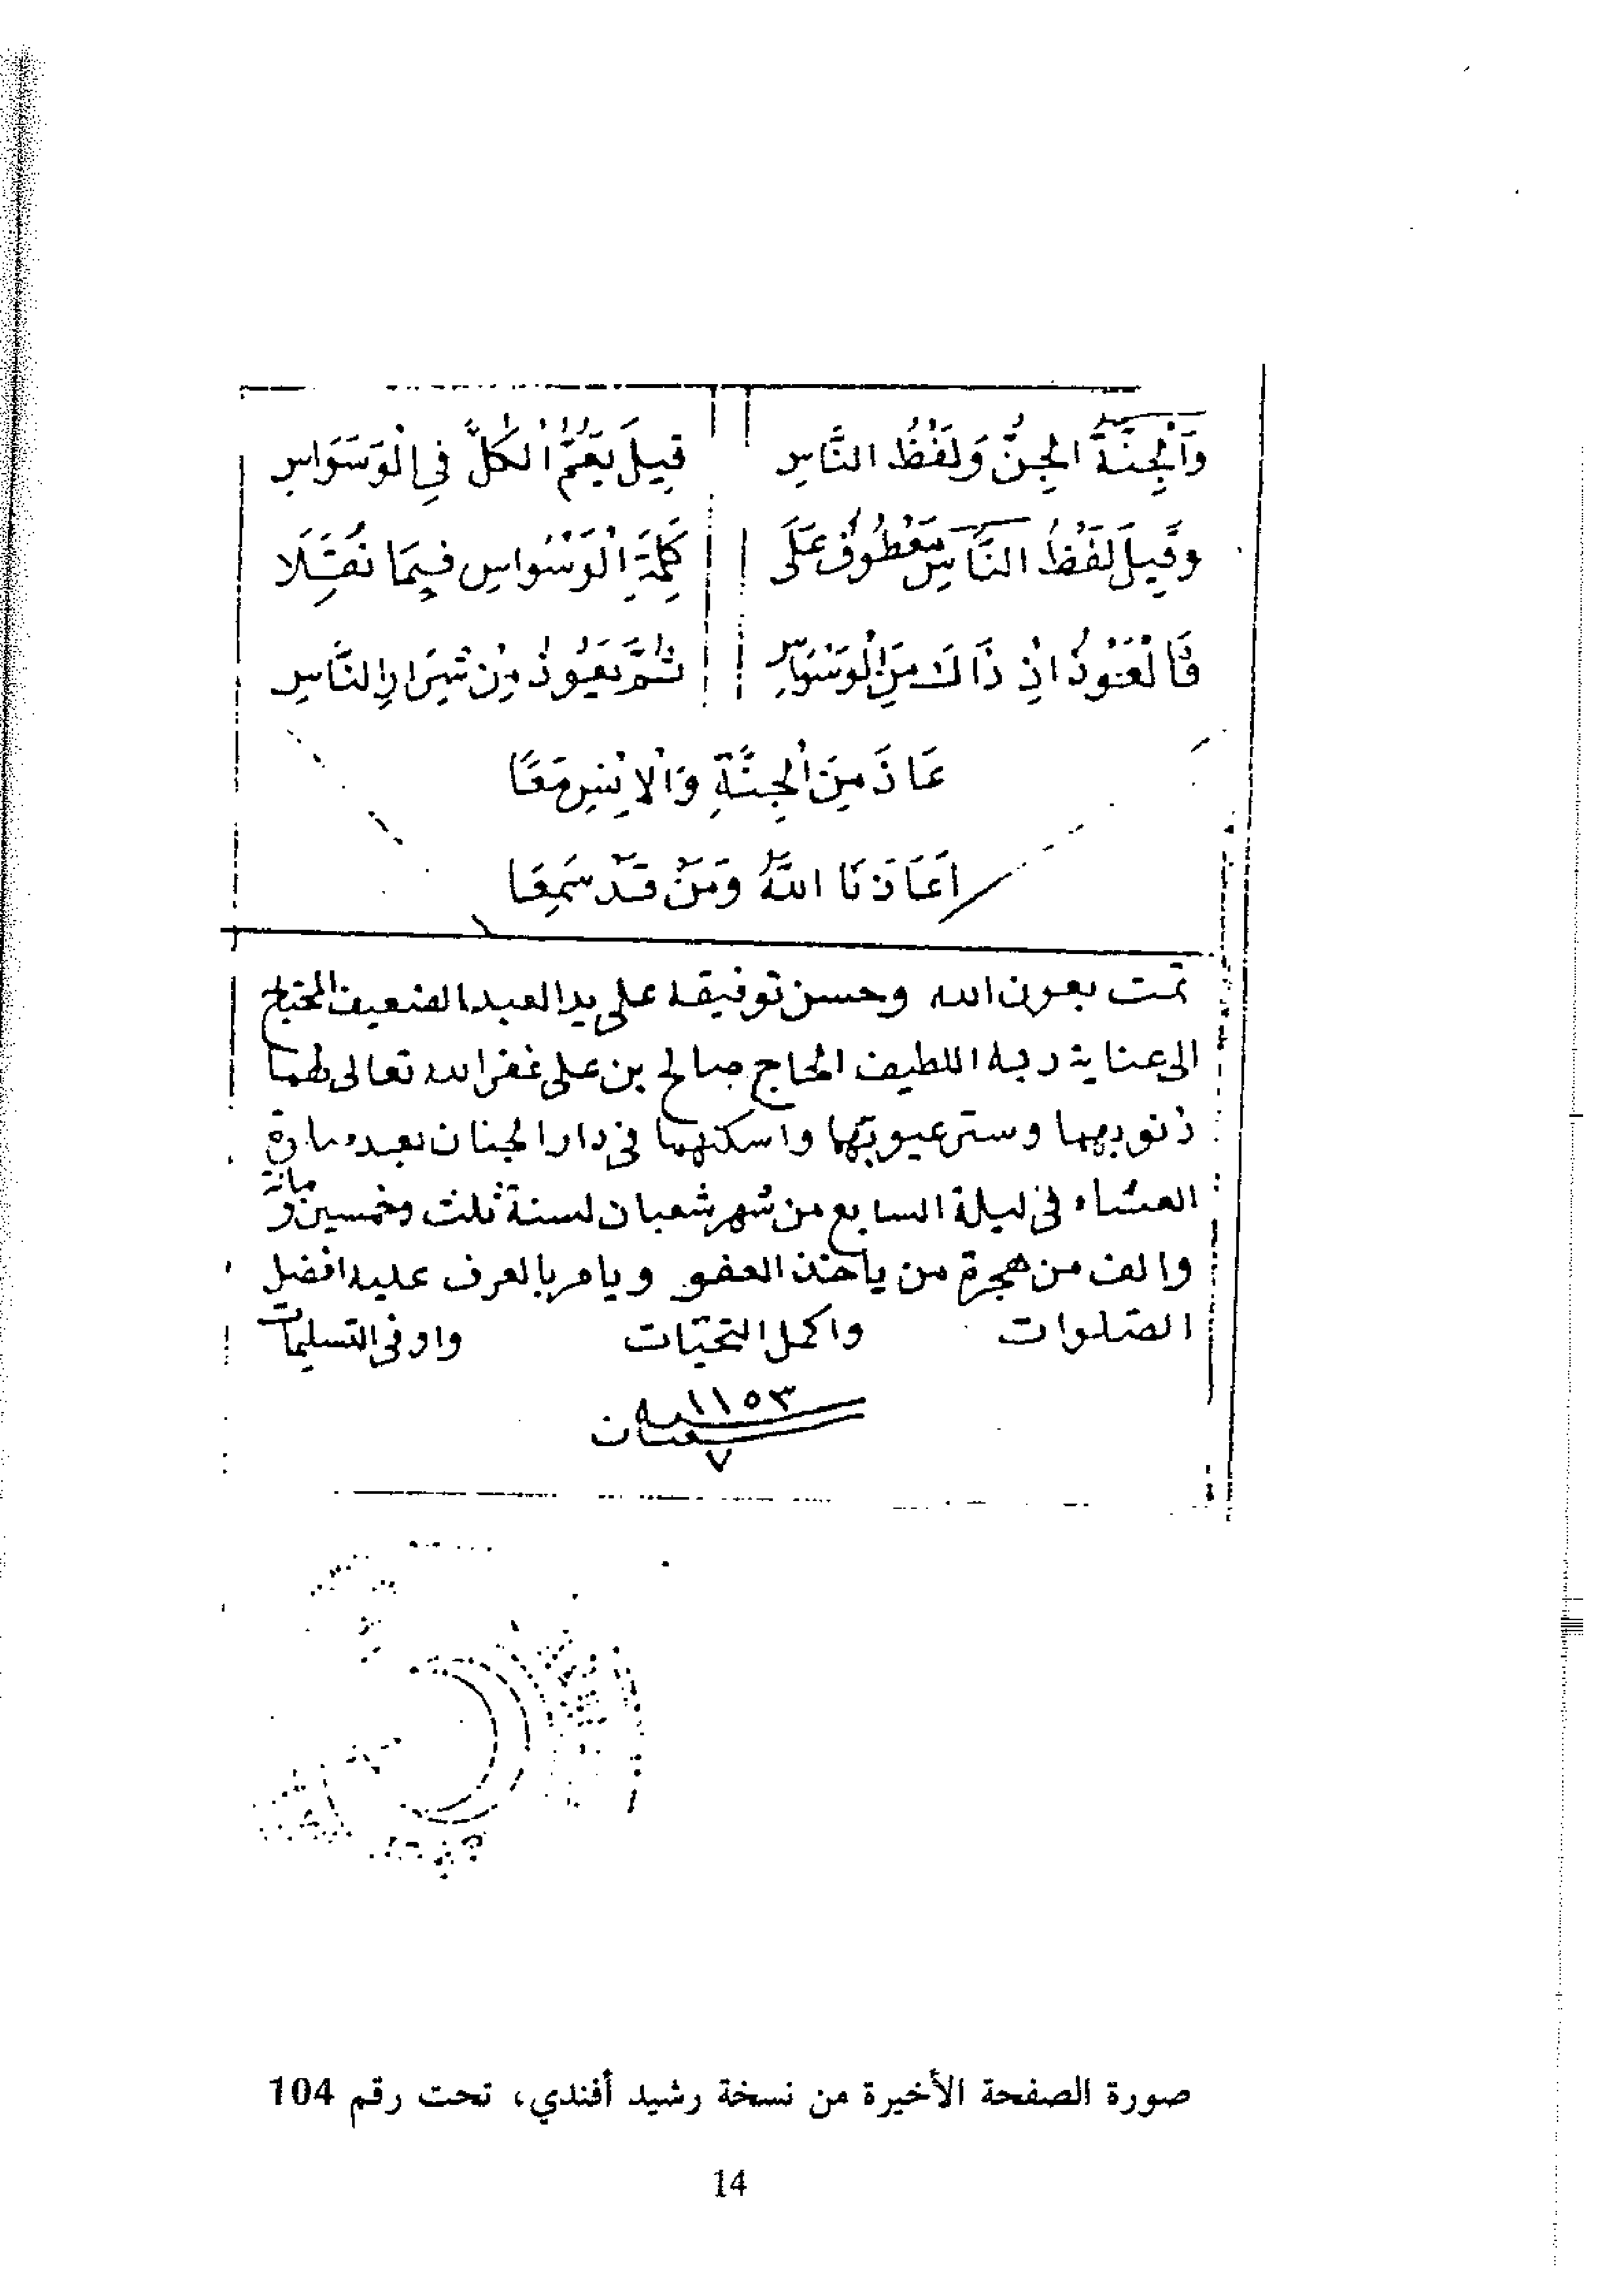 وَالْجِنَّةُ الجِنُّ وَلَفْظُ النَّاسِ قِيلَ يَعُمُّ الْكُلَّ فِي الْوَسْوَاسِ
وَقِيلَ لَفْظُ النَّاسِ مَعْطُوفٌ عَلَى كَلِمَةِ الْوَسْوَاسِ فِيمَا نُقِلَا
فَالْعَوْذُ اِذْ ذَاكَ مِنَ الْوَسْوَاسِ ثُمَّ يَعُوذُ مِنْ شِرَارِ النَّاسِ
عَاذَ مِنَ الْجِنَّةِ وَالْاِنْسِ مَعًا
اَعَاذَنَا اللّٰهُ وَمَنْ قَدْ سَمِعَا
تمت بعون الله وحسن توفيقه على يد العبد الضعيف المحتاج
الى عناية ربه اللطيف الحاج صالح بن على غفر الله تعالى لهما
ذنوبهما وستر عيوبهما واسكنهما فى دار الجنان بعد صلوة
العشاء فى ليلة السابع من شهر شعبان لسنة ثلث وخمسين ومائة
والف من هجرة من ياخذ العفو ويامر بالعرف عليه افضل
الصلوات واكمل التحيّات واوفى التسليمات
سنه ١١٥٣
شعبان
٧
صورة الصفحة الأخيرة من نسخة رشيد أفندي، تحت رقم 104
14